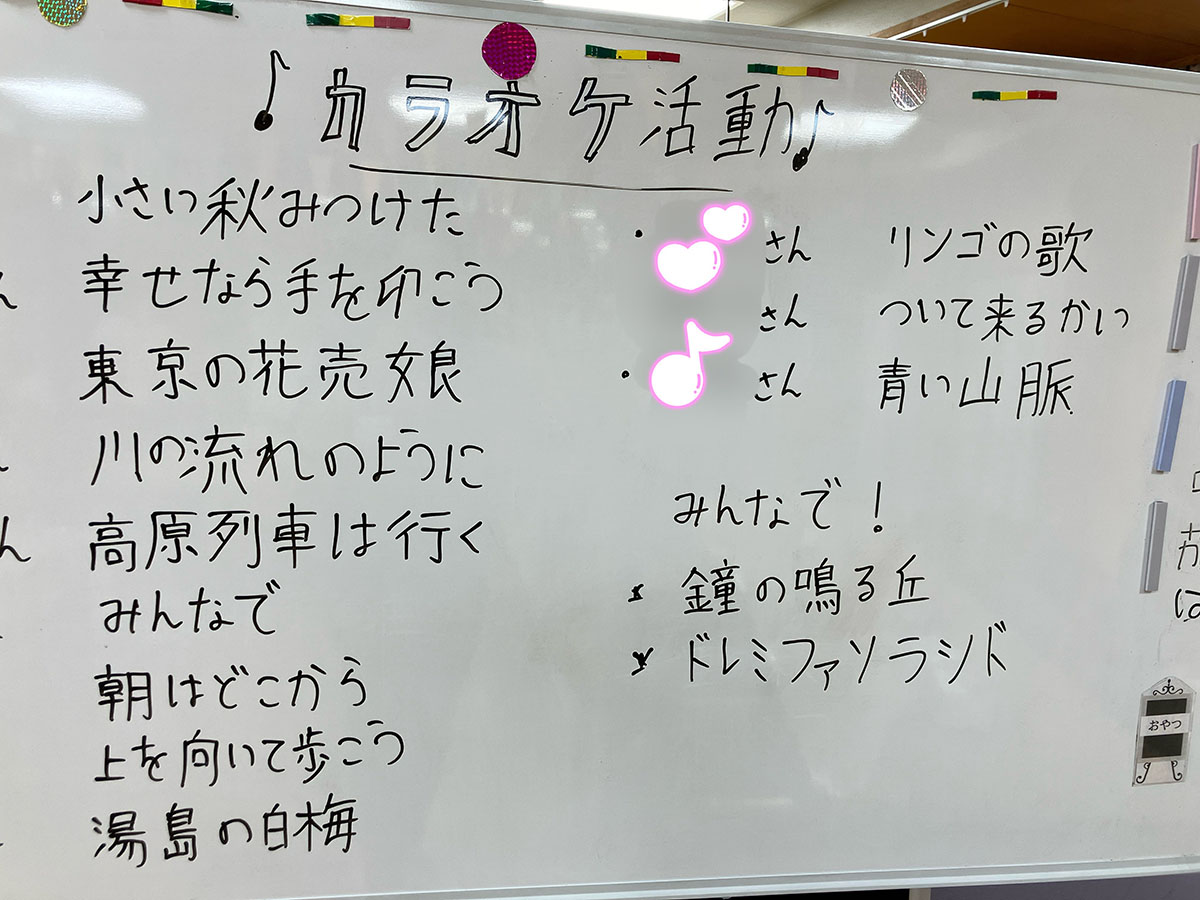 ♪カラオケ活動♪
小さい秋みつけた
ん 幸せなら手を叩こう
東京の花売娘
川の流れのように
ん 高原列車は行く
みんなで
朝はどこから
上を向いて歩こう
湯島の白梅
・ さん リンゴの歌
さん ついて来るかい
・ さん 青い山脈
みんなで！
* 鐘の鳴る丘
* ドレミファソラシド
おやつ